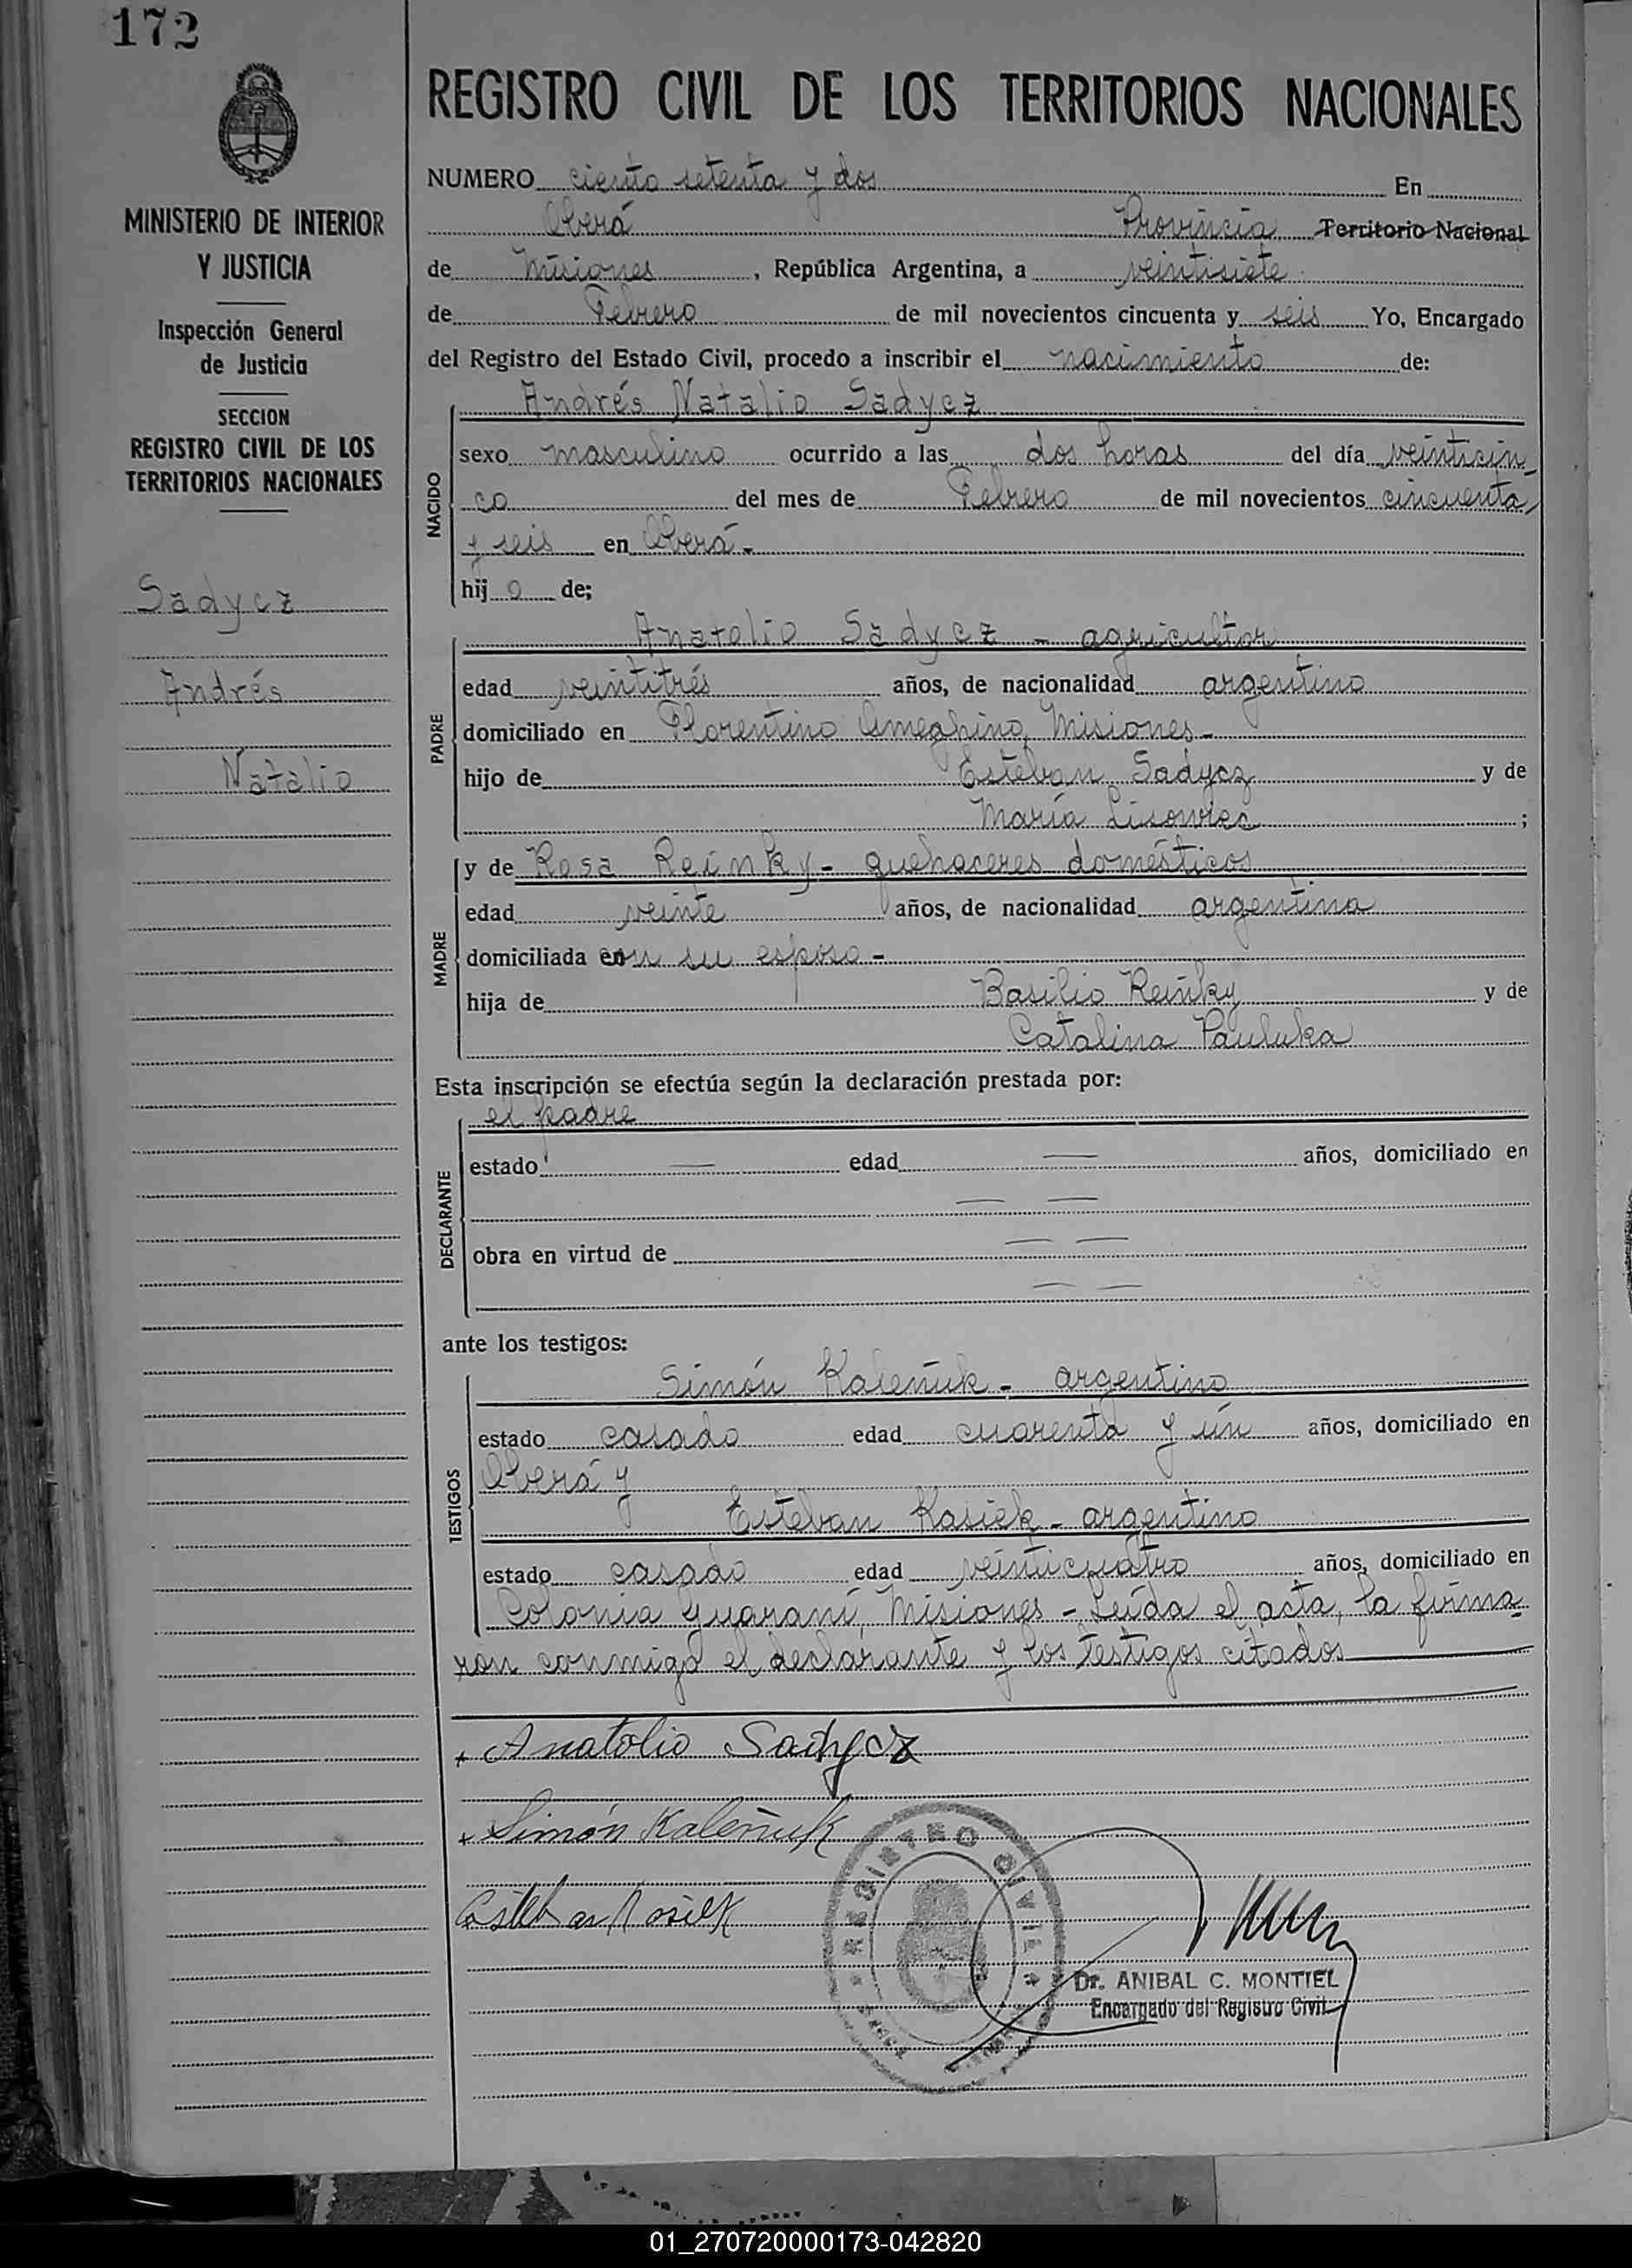 172
MINISTERIO DE INTERIOR
Y JUSTICIA
Inspección General
de Justicia
SECCION
REGISTRO CIVIL DE LOS
TERRITORIOS NACIONALES
Sadycz
Andrés
Natalio
REGISTRO CIVIL DE LOS TERRITORIOS NACIONALES
NUMERO ciento setenta y dos En
Oberá Provincia Territorio Nacional
de Misiones, República Argentina, a veintisiete
de Febrero de mil novecientos cincuenta y seis Yo, Encargado
del Registro del Estado Civil, procedo a inscribir el nacimiento de:
NACIDO
Andrés Natalio Sadycz
sexo masculino ocurrido a las dos horas del día veinticin
co del mes de Febrero de mil novecientos cincuenta
y seis en Oberá -
hij o de;
PADRE
Anatolio Sadycz - agricultor
edad veintitrés años, de nacionalidad argentino
domiciliado en Florentino Ameghino, Misiones -
hijo de Esteban Sadycz y de
María Lisowiec ;
MADRE
y de Rosa Reinky - quehaceres domésticos
edad veinte años, de nacionalidad argentina
domiciliada con su esposo -
hija de Basilio Reinky y de
Catalina Pauluka
Esta inscripción se efectúa según la declaración prestada por:
DECLARANTE
el padre
estado — edad — años, domiciliado en
— —
obra en virtud de — —
— —
ante los testigos:
TESTIGOS
Simón Kaleñuk - argentino
estado casado edad cuarenta y un años, domiciliado en
Oberá y
Esteban Kosiek - argentino
estado casado edad veinticuatro años, domiciliado en
Colonia Guaraní, Misiones - Leída el acta, la firma
ron conmigo el declarante y los testigos citados
Anatolio Sadycz
Simón Kaleñuk
Esteban Kosiek
REGISTRO CIVIL
Dr. ANIBAL C. MONTIEL
Encargado del Registro Civil
01_270720000173-042820